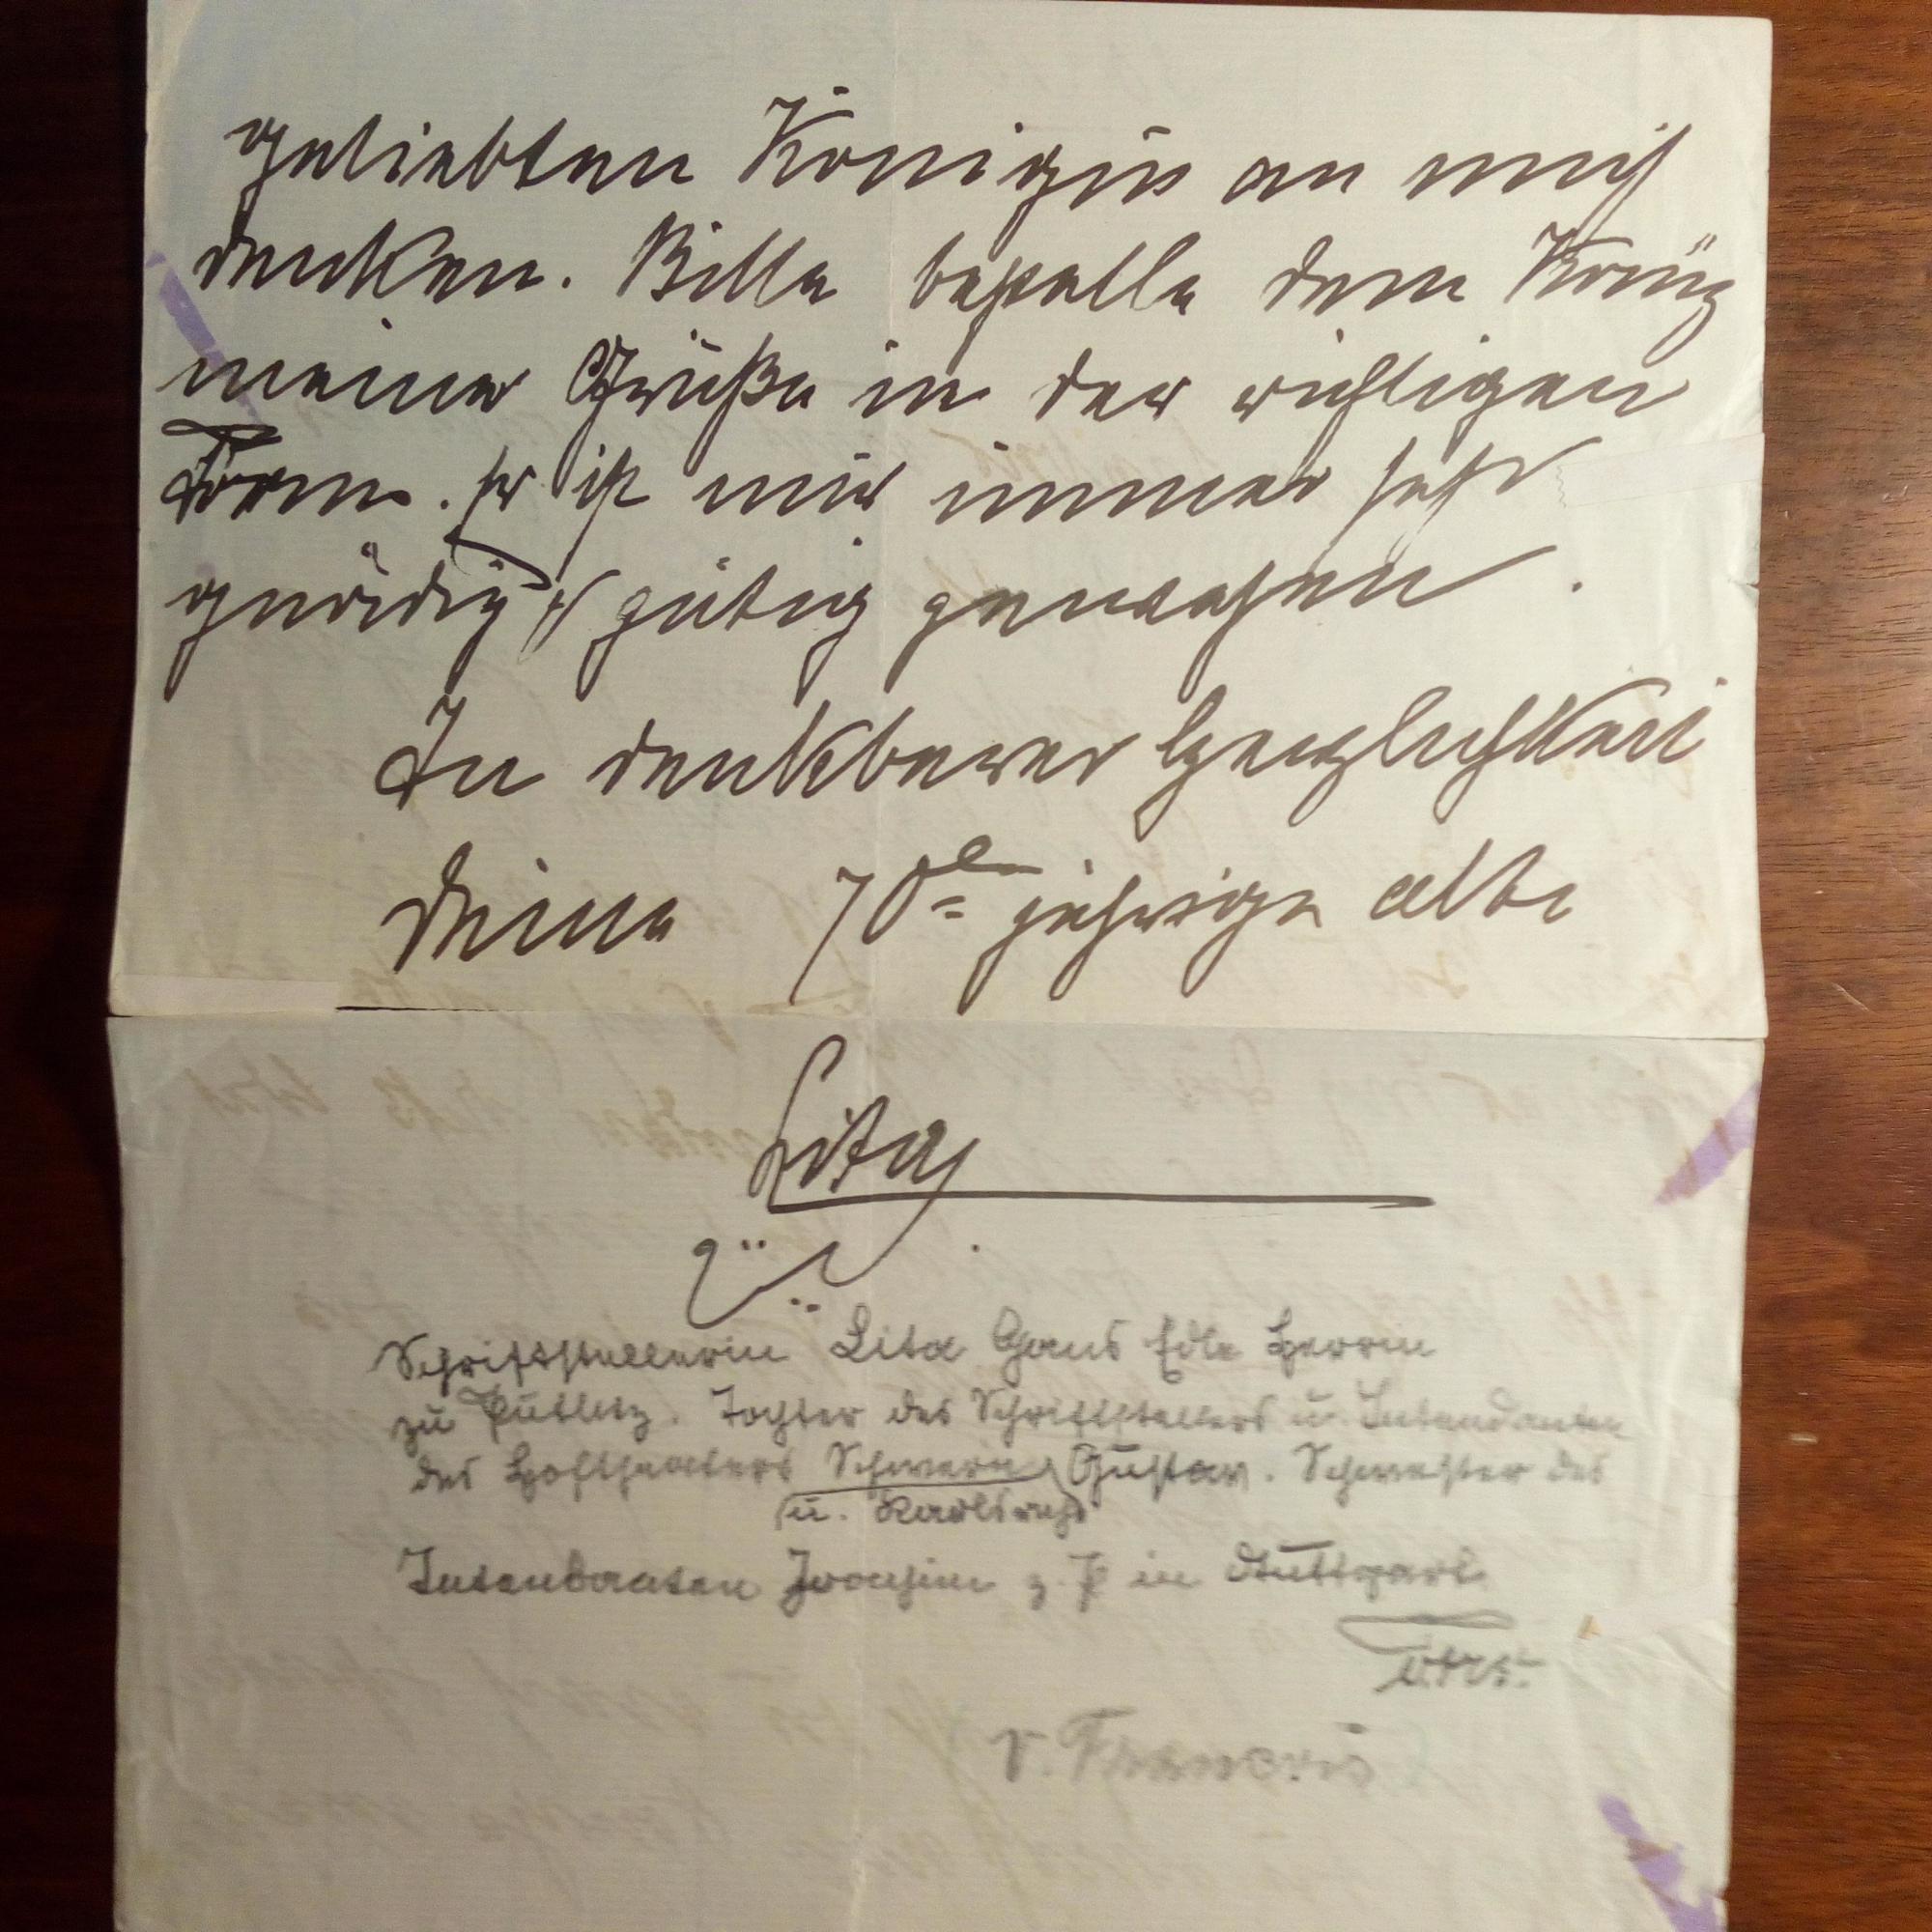 geliebten Königin an mich
denken. Bitte bestelle dem König
meine Grüße in der richtigen
Form. Er ist mir immer sehr
gnädig u gütig gewesen.
In dankbarer Herzlichkeit
Deine 70te jährige alte
Lita
z. P.
Schriftstellerin Lita Gans Edle Herrin
zu Putlitz. Tochter des Schriftstellers u. Intendanten
des Hoftheaters Schwerin Gustav. Schwester des
u. Karlsruhe
Intendanten Joachim z. P. in Stuttgart.
v. François